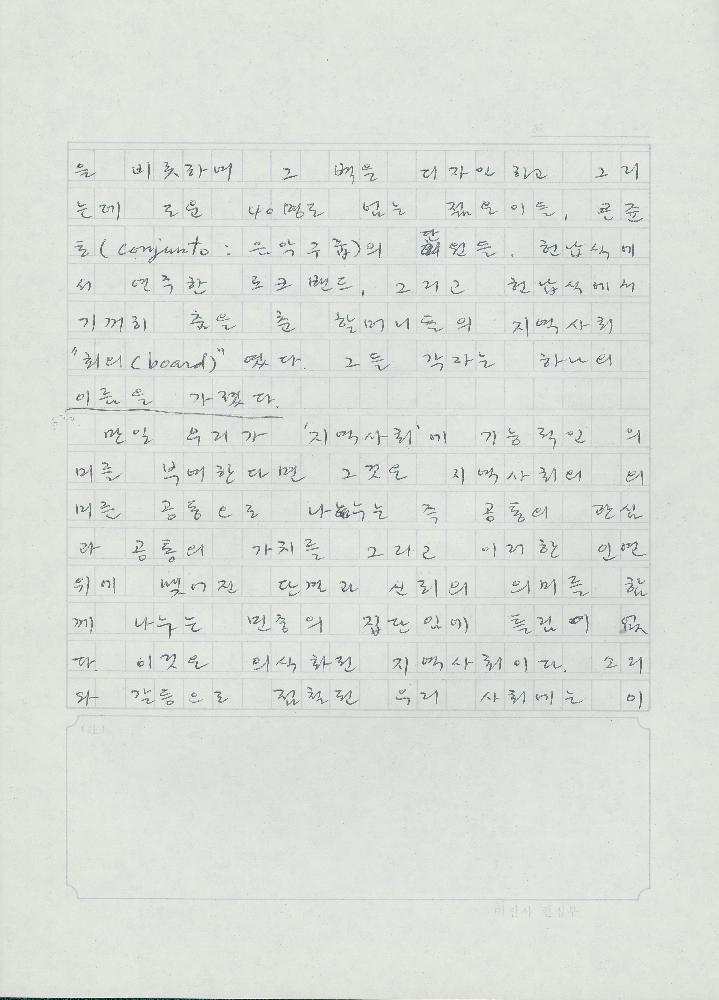 을 비롯하여 그 벽을 디자인 하고 그리
는데 도운 40명도 넘는 젊은이들, 콘준
토(conjunto : 음악 구룹)의 단원들. 헌납식에
서 연주한 로크 밴드, 그리고 헌납식에서
기꺼히 춤을 춘 할머니들의 지역사회
"회의(board)" 였다. 그들 각각는 하나의
이름을 가졌다.
만일 우리가 '지역사회'에 기능적인 의
미를 부여한다면 그것은 지역사회의 의
미를 공통으로 나누는 즉 공통의 관심
과 공통의 가치를 그리고 이러한 인연
위에 맺어진 단결과 신뢰의 의미를 함
께 나누는 민중의 집단임에 틀림이 없
다. 이것은 의식화된 지역사회이다. 소외
와 갈등으로 점철된 우리 사회에는 이
미진사 편집부